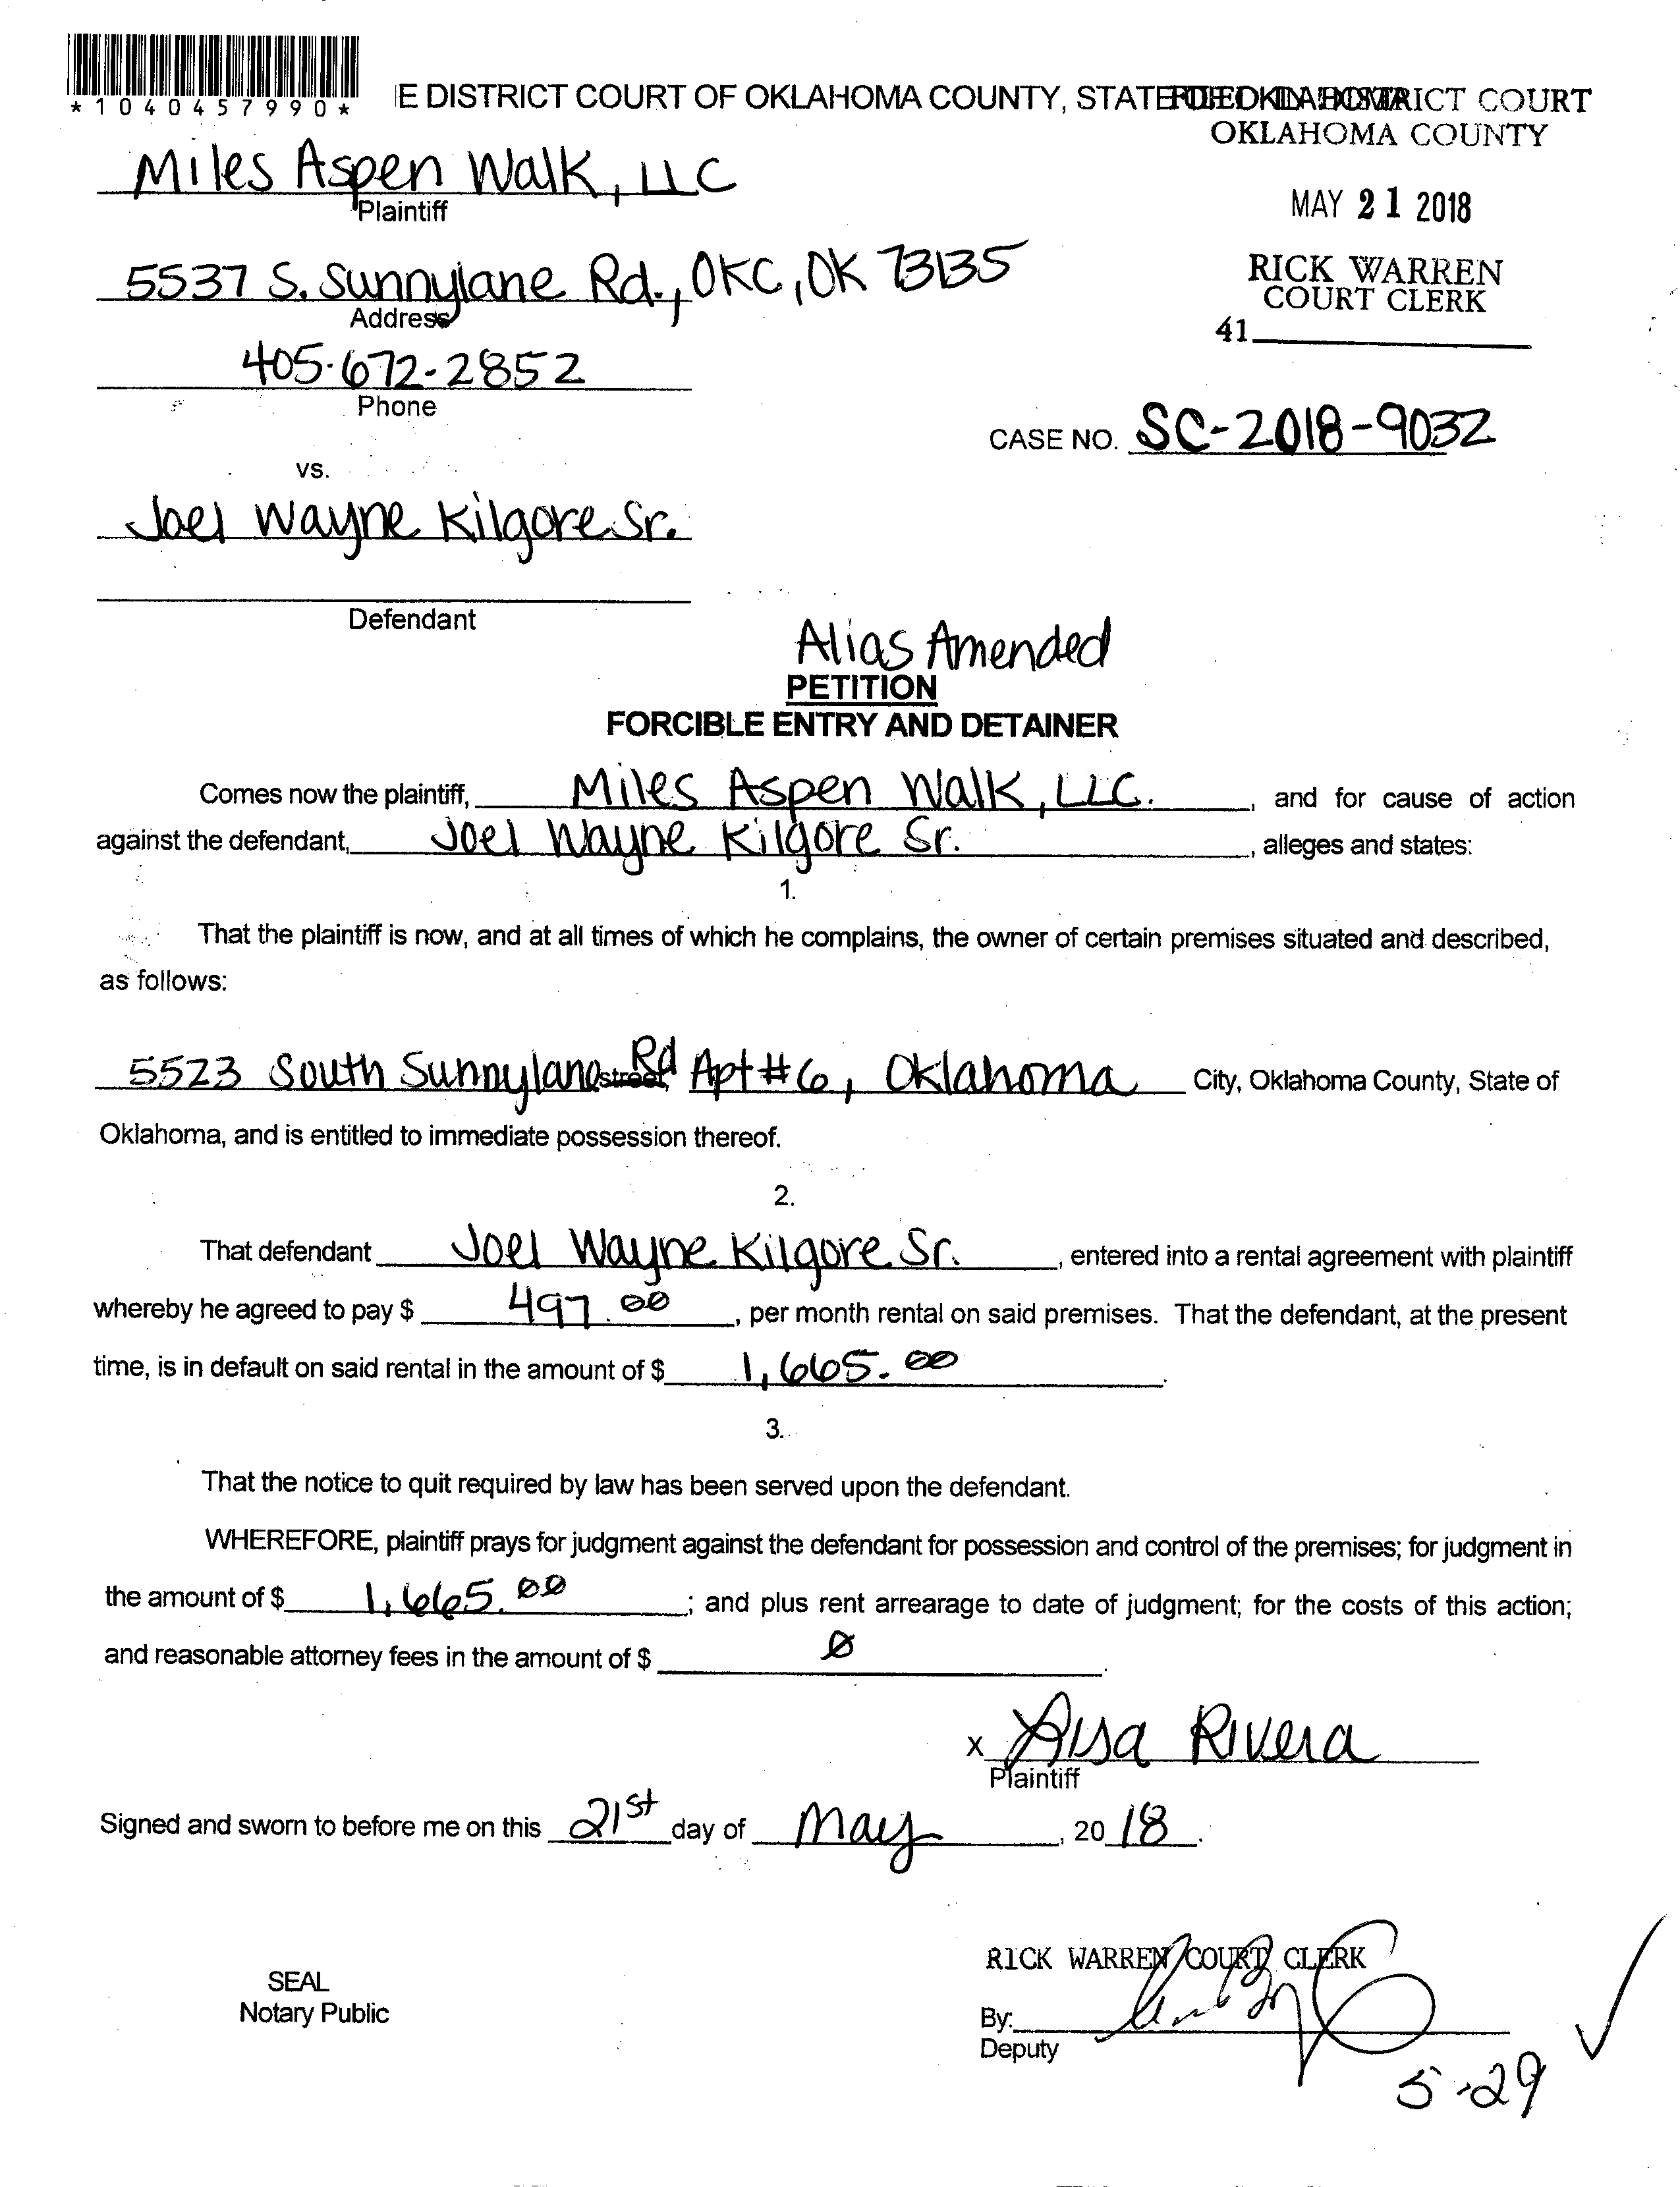 *1040457990*
E DISTRICT COURT OF OKLAHOMA COUNTY, STATE OF OKLAHOMA
FILED IN DISTRICT COURT
OKLAHOMA COUNTY
MAY 21 2018
RICK WARREN
COURT CLERK
41
Miles Aspen Walk, LLC
Plaintiff
5537 S. Sunnylane Rd., OKC, OK 73135
Address
405-672-2852
Phone
CASE NO. SC-2018-9032
vs.
Joel Wayne Kilgore Sr.
Defendant
Alias Amended
PETITION
FORCIBLE ENTRY AND DETAINER
Comes now the plaintiff, Miles Aspen Walk, LLC. , and for cause of action
against the defendant, Joel Wayne Kilgore Sr. , alleges and states:
1.
That the plaintiff is now, and at all times of which he complains, the owner of certain premises situated and described,
as follows:
5523 South Sunnylane street, Rd Apt #6, Oklahoma City, Oklahoma County, State of
Oklahoma, and is entitled to immediate possession thereof.
2.
That defendant Joel Wayne Kilgore Sr. , entered into a rental agreement with plaintiff
whereby he agreed to pay $ 497.00 , per month rental on said premises. That the defendant, at the present
time, is in default on said rental in the amount of $ 1,665.00 .
3.
That the notice to quit required by law has been served upon the defendant.
WHEREFORE, plaintiff prays for judgment against the defendant for possession and control of the premises; for judgment in
the amount of $ 1,665.00 ; and plus rent arrearage to date of judgment; for the costs of this action;
and reasonable attorney fees in the amount of $ Ø .
X Lisa Rivera
Plaintiff
Signed and sworn to before me on this 21st day of May , 20 18 .
RICK WARREN COURT CLERK
SEAL
Notary Public
By:
Deputy
5-29